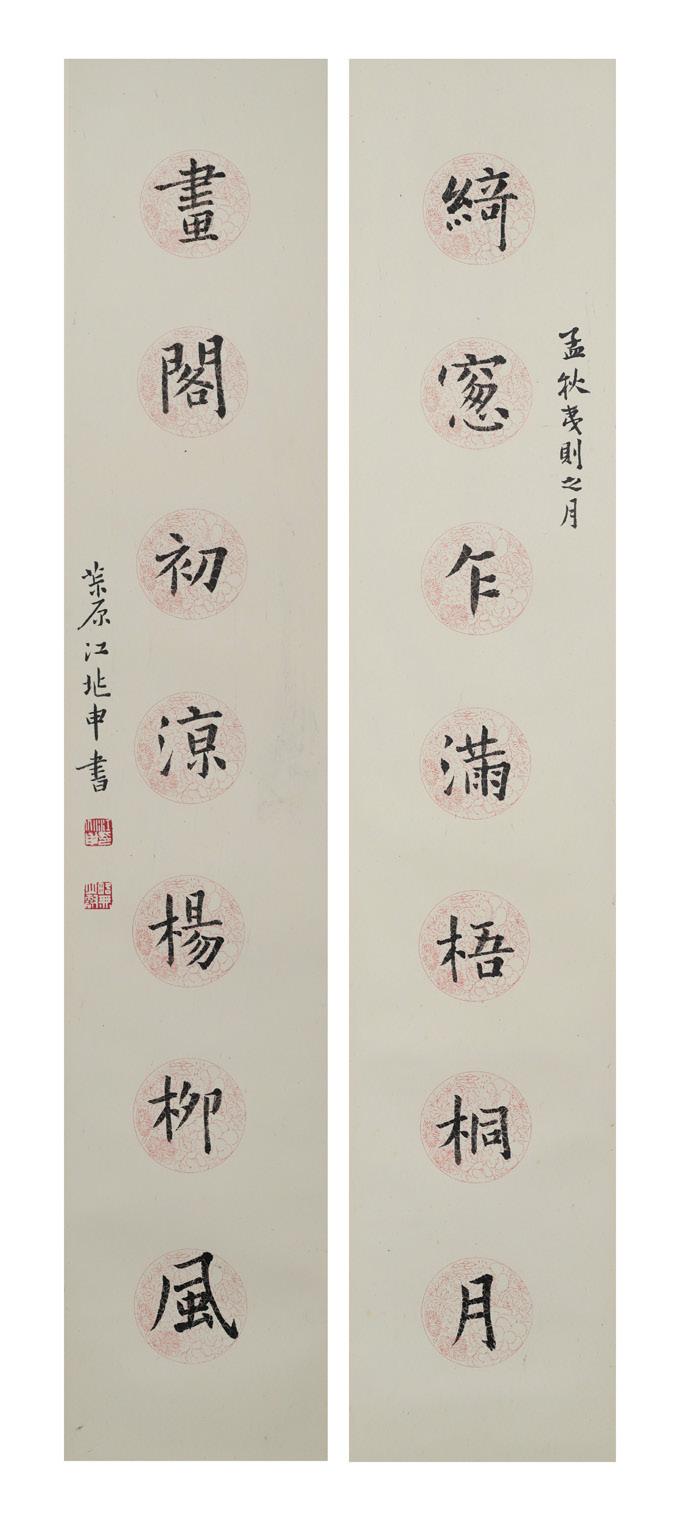 孟秋夷則之月
綺窻乍滿梧桐月
畫閣初涼楊柳風
茮原江兆申書